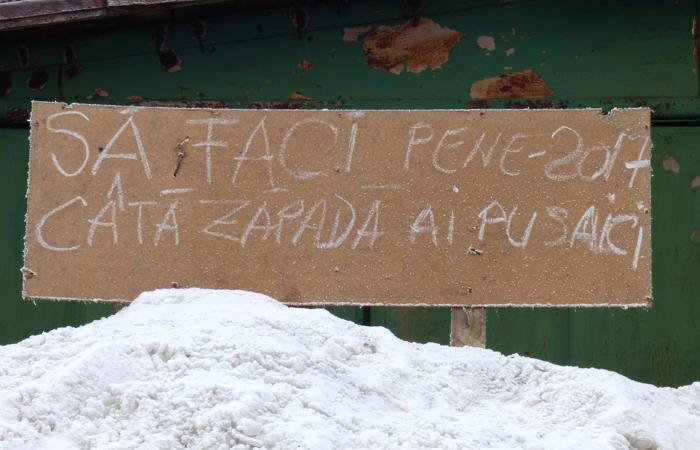 SĂ FACI PENE-2017
CÂTĂ ZĂPADĂ AI PUS AICI